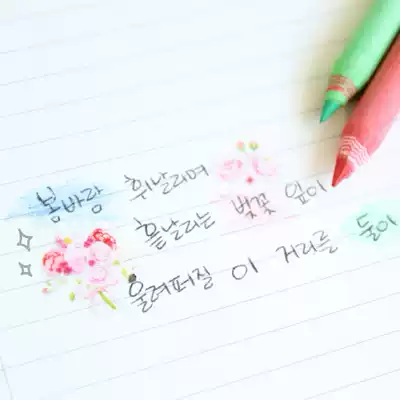 봄바람 휘날리며
흩날리는 벚꽃 잎이
울려퍼질 이 거리를 둘이